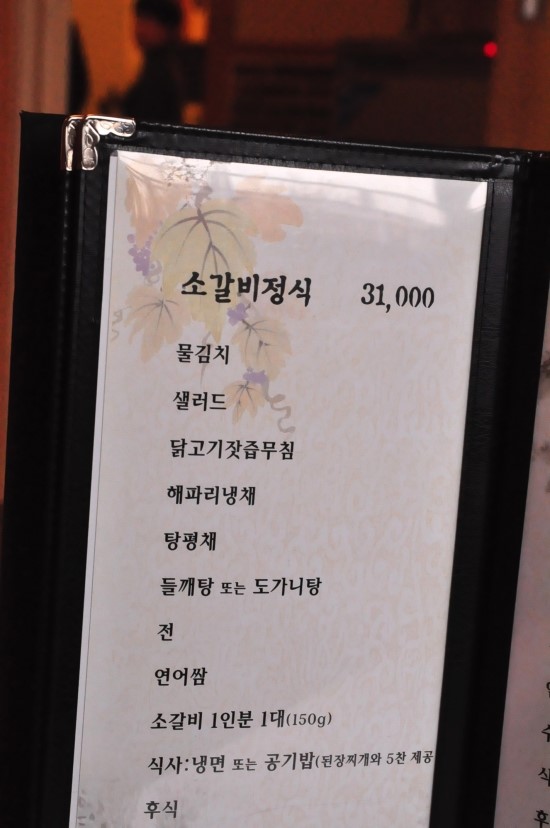 소갈비정식 31,000
물김치
샐러드
닭고기잣즙무침
해파리냉채
탕평채
들깨탕 또는 도가니탕
전
연어쌈
소갈비 1인분 1대(150g)
식사:냉면 또는 공기밥(된장찌개와 5찬 제공
후식